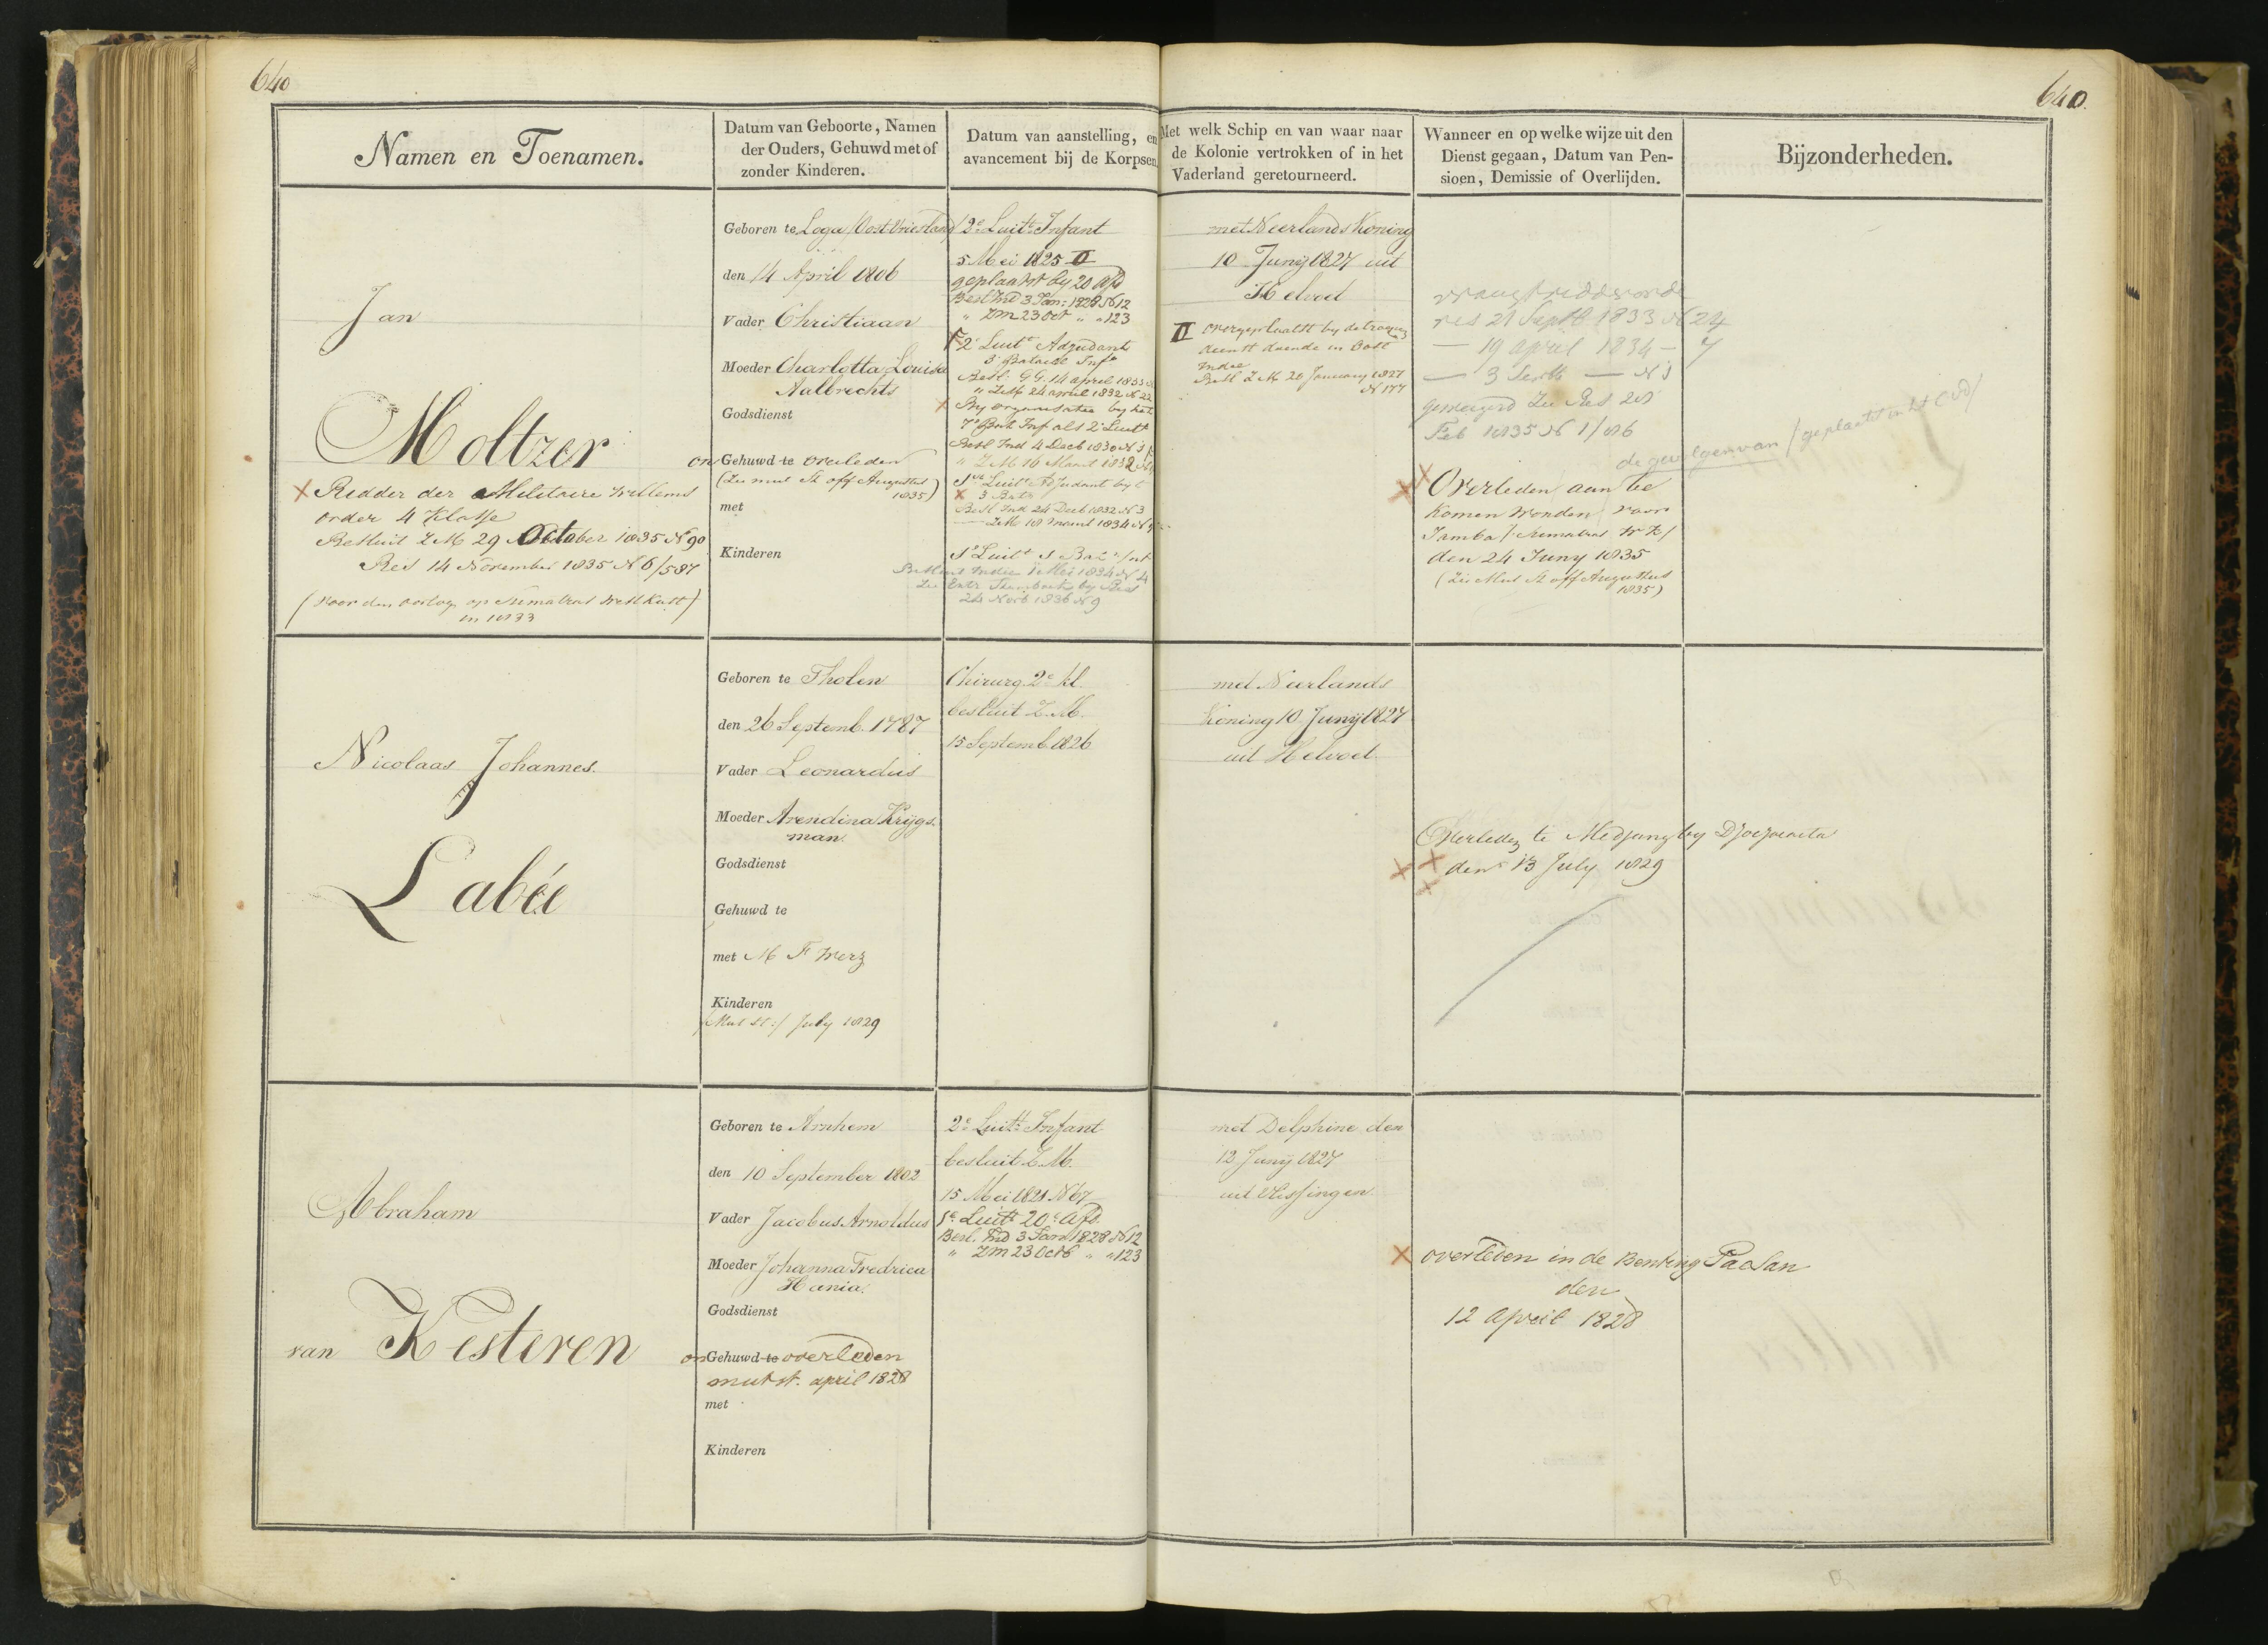 640
640.
Namen en Toenamen.
Datum van Geboorte, Namen
der Ouders, Gehuwd met of
zonder Kinderen.
Datum van aanstelling, en
avancement bij de Korpsen.
Met welk Schip en van waar naar
de Kolonie vertrokken of in het
Vaderland geretourneerd.
Wanneer en op welke wijze uit den
Dienst gegaan, Datum van Pen-
sioen, Demissie of Overlijden.
Bijzonderheden.
Jan
Moltzer
Ridder der Militaire Willems
order 4 Klasse
Besluit Z M 29 October 1835 N 90
Res 14 November 1835 N 6/587
(voor den oorlog op Sumatras Westkust)
in 1833
Geboren te Loga/Oostvriesland/
den 14 April 1806
Vader Christiaan
Moeder Charlotta Louisa
Aalbrechts
Godsdienst
on Gehuwd te overleden
(Zie mut St off Augustus
1835)
met
Kinderen
2e Luitt Infant
5 Mei 1825 II
geplaatst by 20 afd
Besl Ind 3 Jan: 1828 N 12
" ZM 23 Oct " " 123
2e Luitt Adjudant
3e Bataill Infe
Besl: GG. 14 april 1833
" Z M 24 april 1832 N 22
By organisatie by het
7e Bat Inf als 2e Luitt
Besl Ind 4 Decb 1830 N 3
" Z M 16 Maart 1832
1ste Luitt Adjudant by t
3 Batn
Besl Ind 24 Decb 1832 N 3
Z M 18 Maart 1834 N
1e Luitt 1 Batn Inf
Besluit Indie 1 Mei 1834 N 4
24 Novb 1836 N 9
met Neerlands Koning
10 Junij 1827 uit
Helvoet
II overgeplaatst by de troepen
dienst doende in Oost
Indie
Besl Z M 20 January 1827
N 177
res 21 Septb 1833 N 24
— 19 april 1834 — 7
— 3 Septb — N 1
geweigerd Zie Res 20
Feb 1835 N 1/86
de gevolgen van / geplaatst in
Overleden aan be
komen wonden voor
Jamba /: Sumatras W K/
den 24 Juny 1835
(Zie Mut St off Augustus
1835)
Nicolaas Johannes.
Labée
Geboren te Tholen
den 26 Septemb. 1787
Vader Leonardus
Moeder Arendina Krijgs-
man.
Godsdienst
Gehuwd te
met M F Werz
Kinderen
/Mut St:/ July 1829
Chirurg 2e kl.
besluit Z. M.
15 Septemb 1826
met Neerlands
Koning 10 Junij 1827
uit Helvoet.
Overleden te Medjang by Djocjocarta
den 13 July 1829
Abraham
van Kesteren
Geboren te Arnhem
den 10 September 1802
Vader Jacobus Arnoldus
Moeder Johanna Fredrica
Hania.
Godsdienst
on Gehuwd te overleden
mut st. april 1828
met
Kinderen
2e Luitt Infant
besluit Z. M.
15 Mei 1821 N 67
1e Luitt 20e Afd.
Besl. Ind 3 Jan 1828 N 12
" ZM 23 Octb " " 123
met Delphine den
12 Junij 1827
uit Vlissingen.
overleden in de Benting Paesan
den
12 April 1828